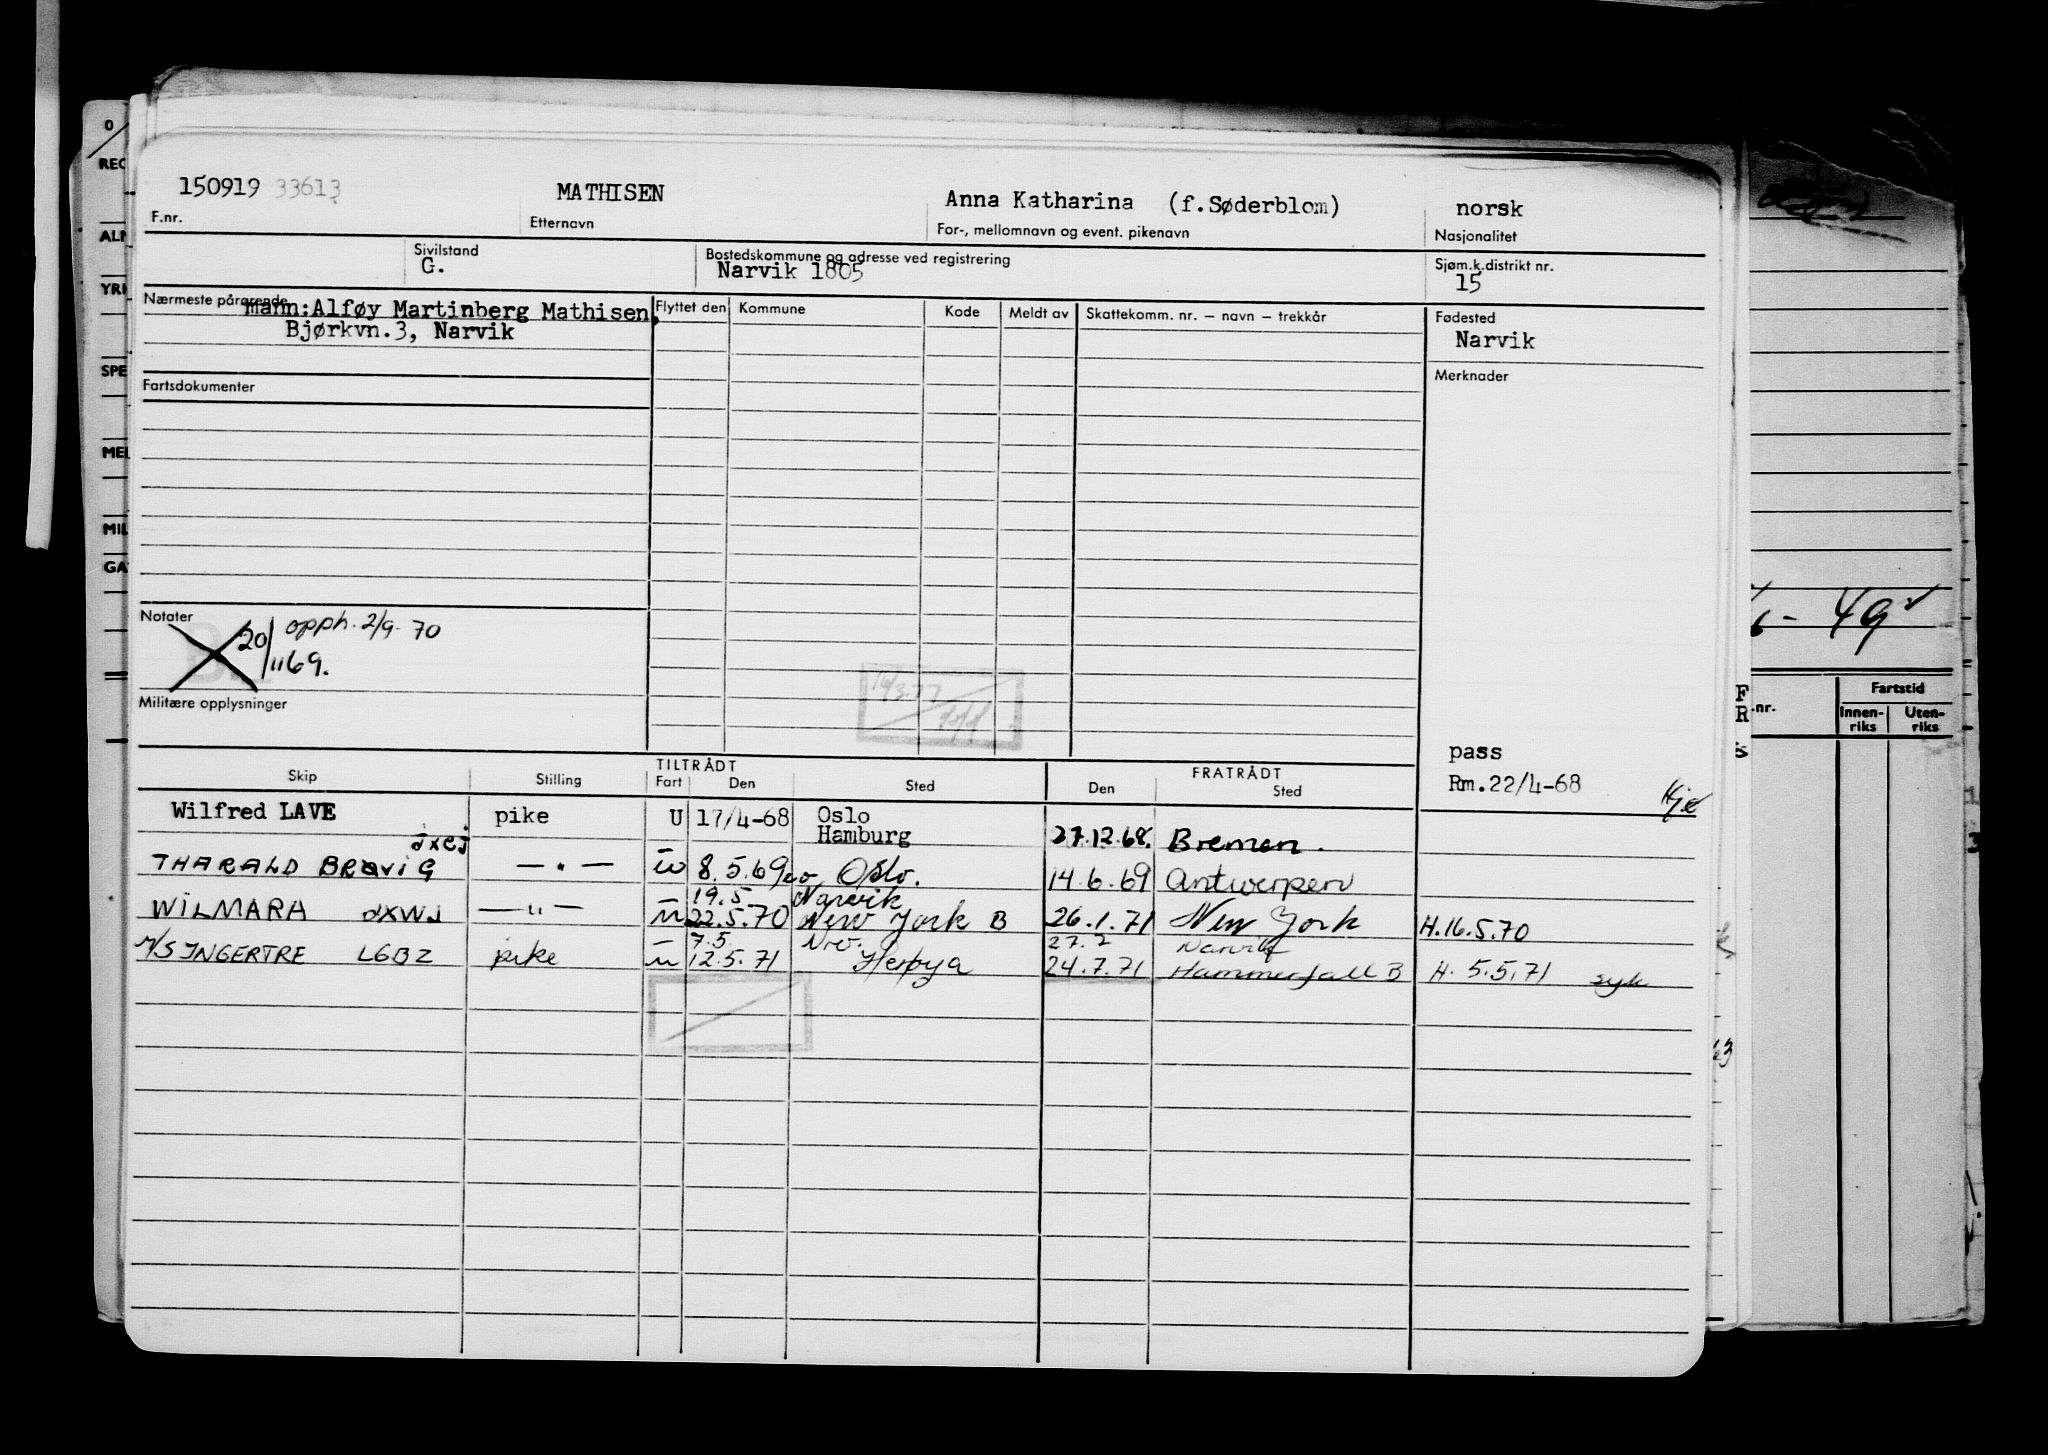 150919 33613 MATHISEN Anna Katharina (f.Søderblom) norsk
F.nr. Etternavn For-, mellomnavn og event. pikenavn Nasjonalitet
Sivilstand Bostedskommune og adresse ved registrering Sjøm.k.distrikt nr.
G. Narvik 1805 15
Nærmeste pårørende Flyttet den Kommune Kode Meldt av Skattekomm. nr. — navn — trekkår Fødested
mann:Alføy Martinberg Mathisen,
Bjørkvn.3, Narvik Narvik
Fartsdokumenter Merknader
Notater
20/11 69. opph. 2/9-70
Militære opplysninger
16/3.77
pass
Rm.22/4-68
TILTRÅDT FRATRÅDT
Skip Stilling Fart Den Sted Den Sted
Wilfred LAVE pike U 17/4-68 Oslo
Hamburg 27.12.68. Bremen.
JXCJ
THARALD BRØVIG —"— u 8.5.69 Oslo. 14.6.69 Antwerpen
19.5 Narvik
WILMARA JXWJ —"— u 22.5.70 New York B 26.1.71 New York H.16.5.70
7.5 Nrv. 27.7 Narvik
M/S INGERTRE LGBZ pike u 12.5.71 Herøya 24.7.71 Hammerfall B H. 5.5.71 syk
0
REG
ALM
YRK
SPE
MEL
MIL
GA
- 49
F
R
S
.nr. Fartstid
Innen-riks Uten-riks